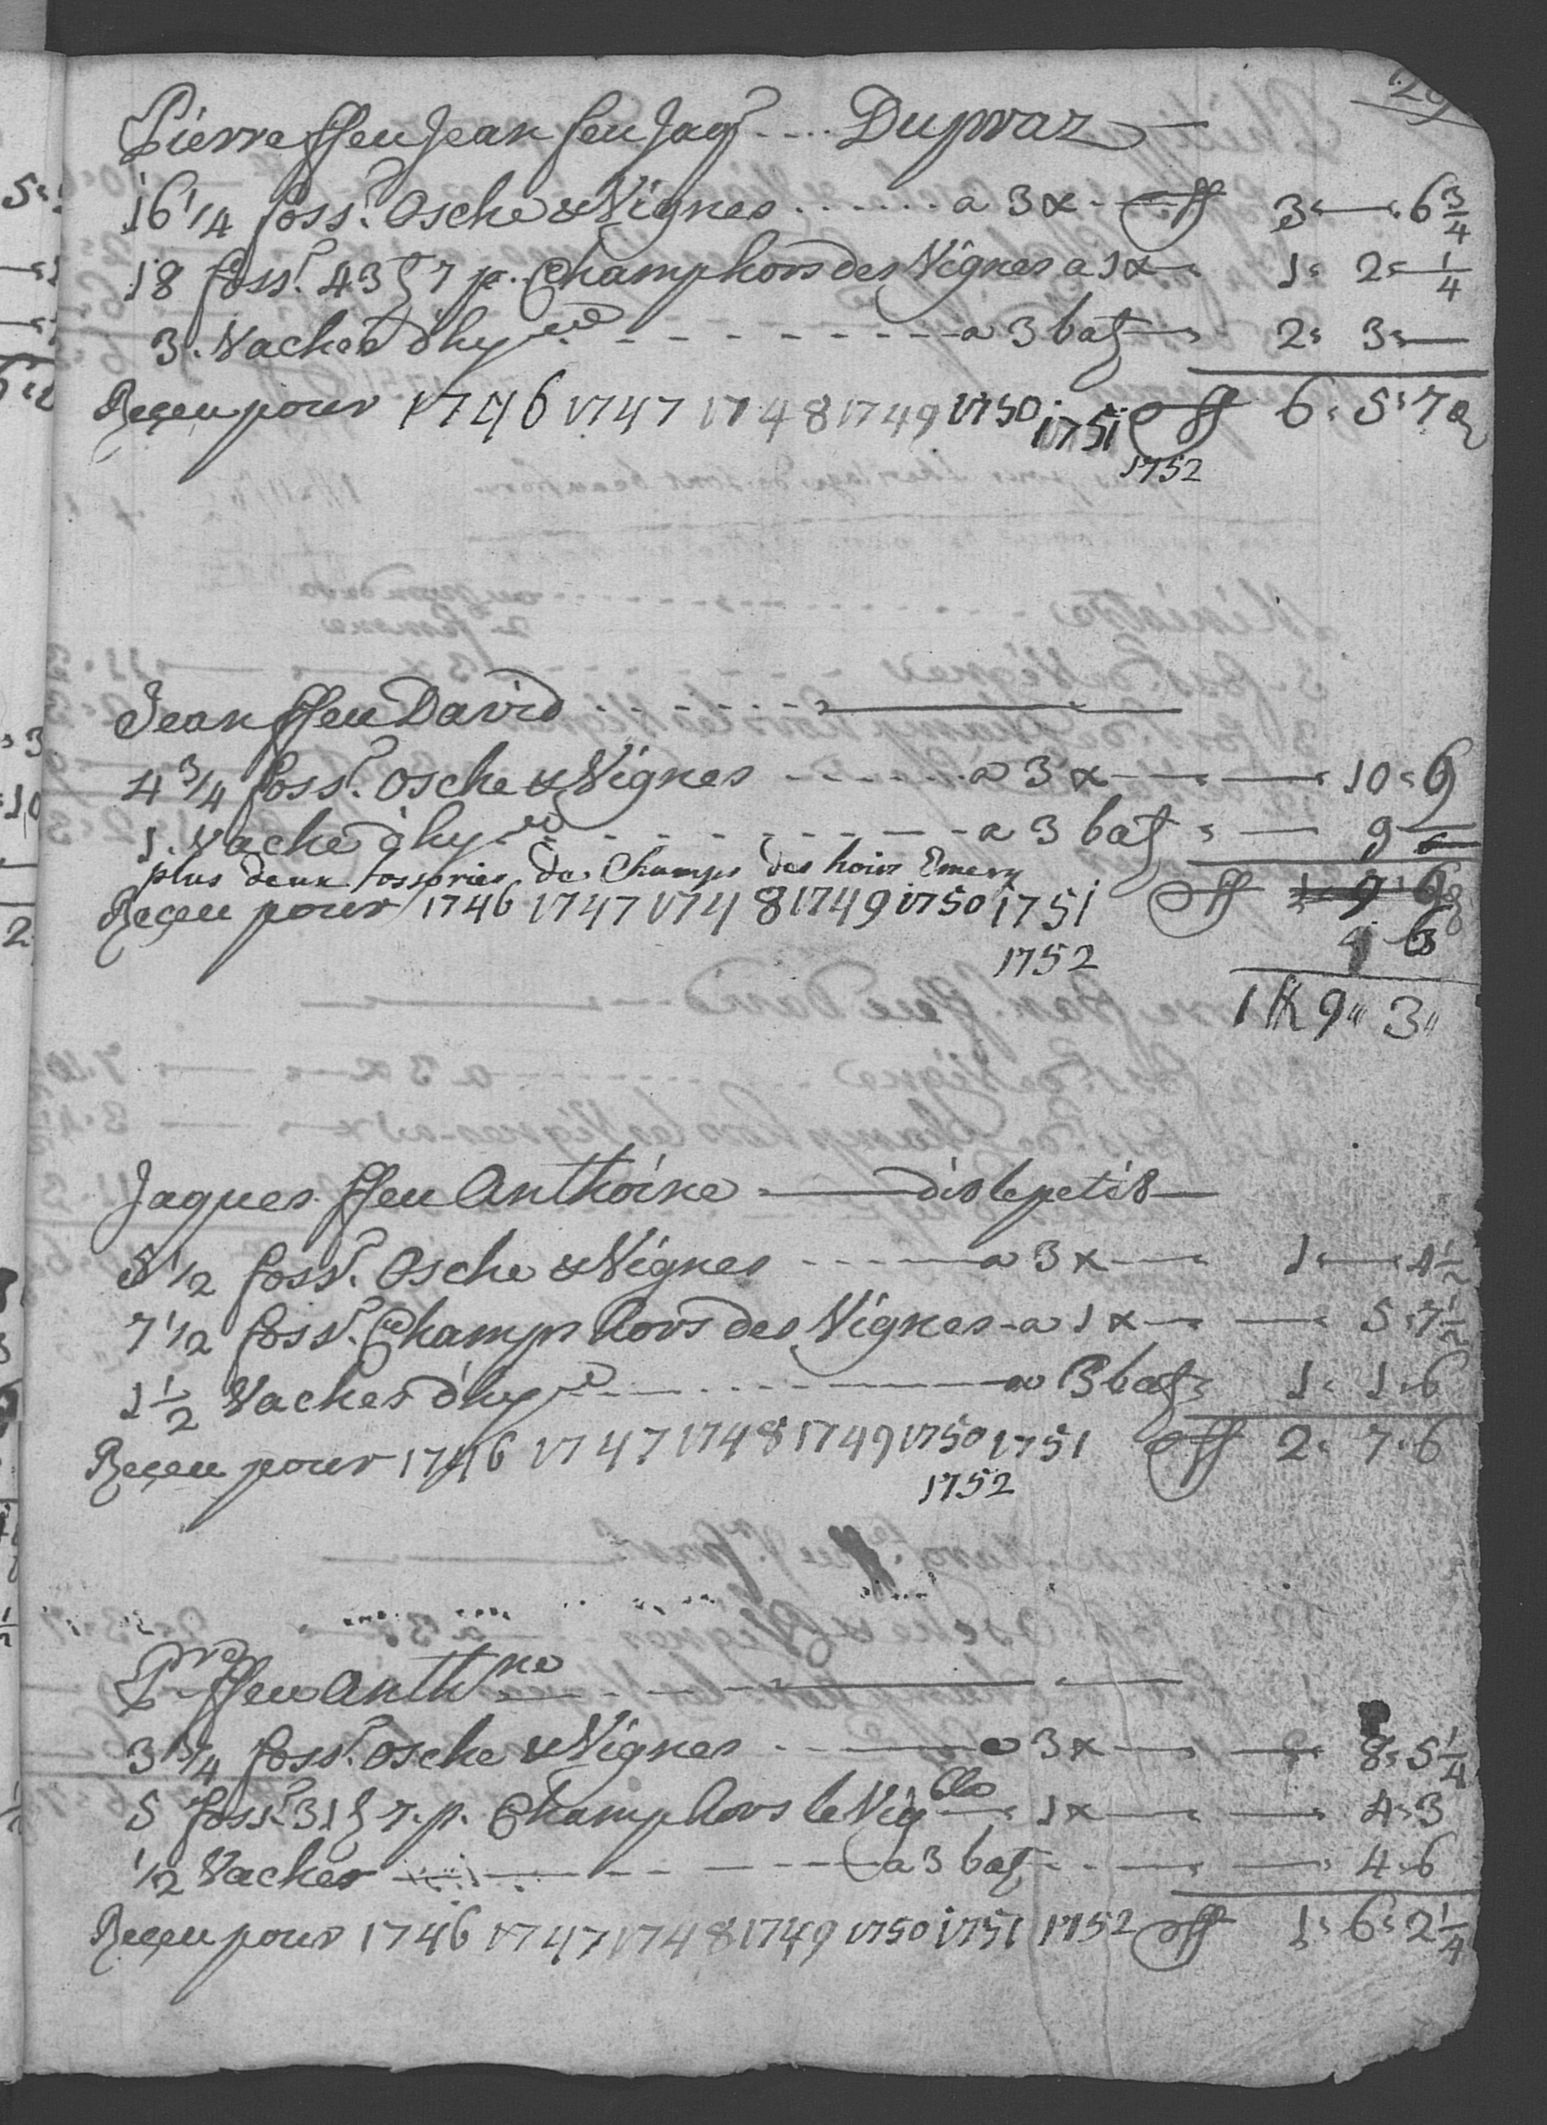 29
Pierre ffeu Jean feu Jaq.^s .... Dupraz
16 1/4 foss.^r Osche & Vignes ....... a 3 x ---- ff 3 " — " 6 3/4
18 foss.^r 43 ʒ 7 p. Champ hors des Vignes a 1 x — 1 " 2 " 1/4
3. Vaches d'hy^ve - - - - - - - - a 3 batʒ — 2 " 3 " —
Reçeu pour 1746 1747 1748 1749 1750 1751 ff 6 " 5 " 7
1752
Jean ffeu David - - - - - -
4 3/4 foss.^r Osche & Vignes - - - - - - a 3 x — " — " 10 " 6
1. Vache d'hy^ve - - - - - - - - a 3 batʒ " — 9 —
plus deux fossories de Champs des hoirs Emery
Reçeu pour 1746 1747 1748 1749 1750 1751 ff
1752
1 ff 9 " 3 "
Jaques ffeu Anthoine — dit le petit —
5 1/2 foss.^r Osche & Vignes - - - - - a 3 x — " 1 " — " 4 1/2
7 1/2 foss.^r Champs hors des Vignes - a 1 x — " — " 5 " 7 1/2
1 1/2 Vaches d'hy^ve - - - - - - a 3 batʒ " 1 " 1 " 6
Reçeu pour 1746 1747 1748 1749 1750 1751 ff 2 " 7 " 6
1752
P^re ffeu Anth^ne - - - -
3 3/4 foss.^r Osche & Vignes - - - a 3 x — " — " 8 " 5 1/4
5 foss.^r 31 ʒ 7. p. Champ hors le Vig^ble — " 1 x — " — " 4 " 3
1/2 Vaches - - - - - - a 3 batʒ - - — " — " 4 " 6
Reçeu pour 1746 1747 1748 1749 1750 1751 1752 ff 1 " 6 " 2 1/4